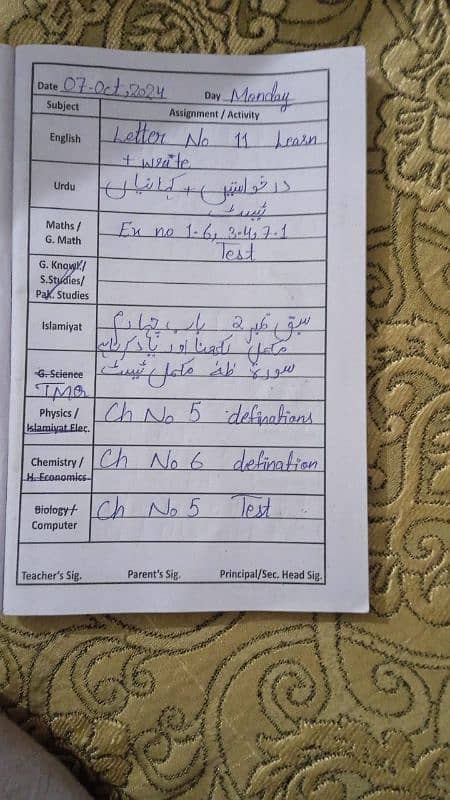 Date 07-Oct,2024 Day Monday
Subject Assignment / Activity
English Letter No 11 Learn
+ write
Urdu درخواستیں + کہانیاں
ٹیسٹ
Maths / G. Math Ex no 1-6, 3-4, 7-1
Test
G. Know./
S.Studies/
Pak. Studies
Islamiyat سبق نمبر 2 باب چہارم
مکمل لکھنا اور یاد کرنا ہے
G. Science سورۃ طہٰ مکمل ٹیسٹ
TMQ
Physics / Ch No 5 definations
Islamiyat Elec.
Chemistry / Ch No 6 defination
H. Economics
Biology / Ch No 5 Test
Computer
Teacher's Sig. Parent's Sig. Principal/Sec. Head Sig.